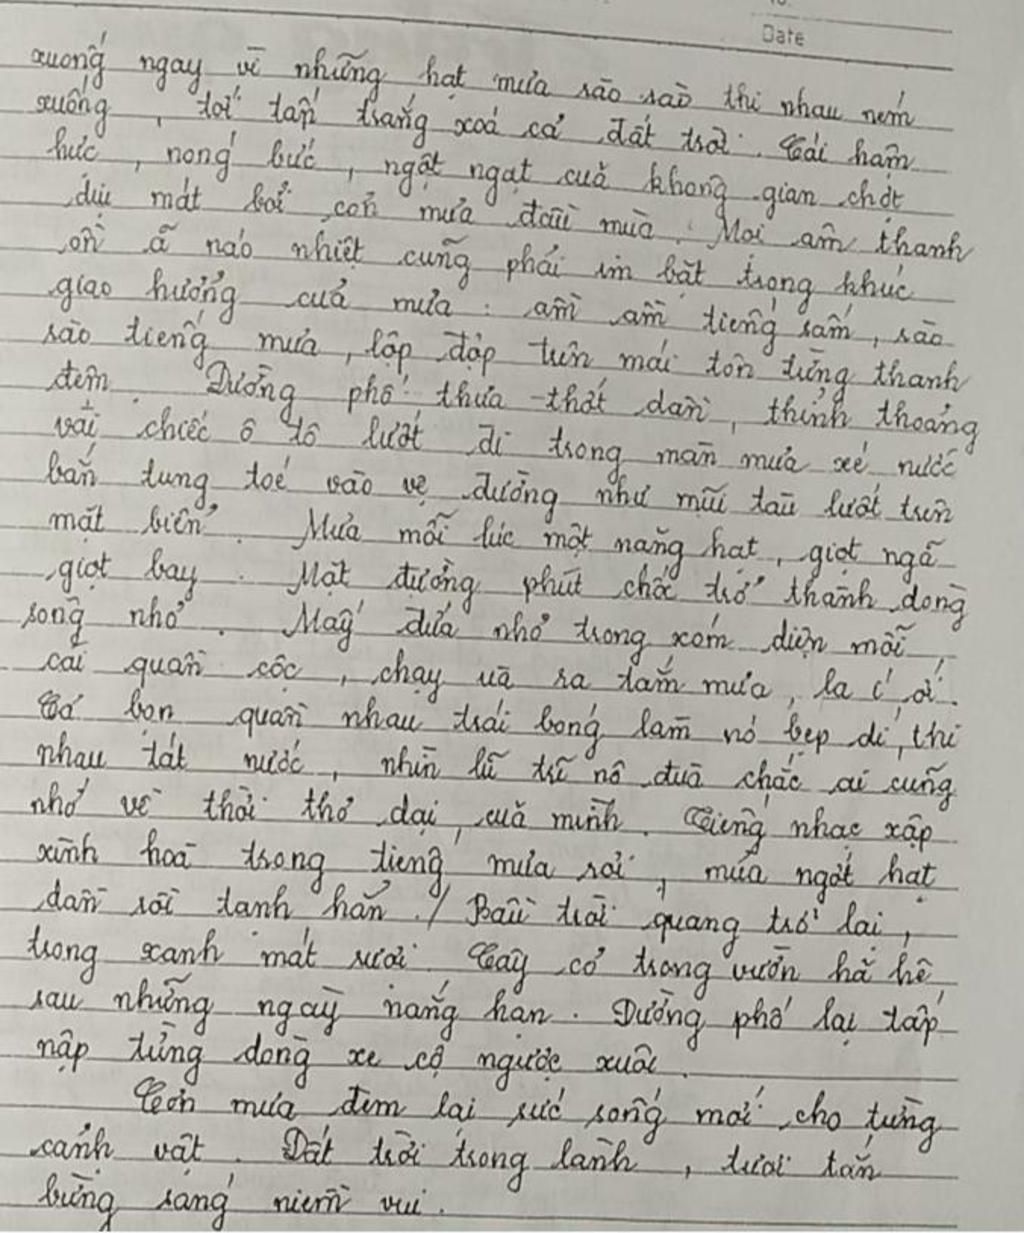 Date
xuống ngay vì những hạt mưa sào sào thi nhau ném
xuống, tới tấp trắng xoá cả đất trời. Cái hầm
hực, nóng bức, ngột ngạt của không gian chợt
dịu mát bởi cơn mưa đầu mùa. Mọi âm thanh
ồn ã náo nhiệt cũng phải im bặt trong khúc
giao hưởng của mưa: ầm ầm tiếng sấm, sào
sào tiếng mưa, lộp độp trên mái tôn từng thanh
đêm. Đường phố thưa thớt dần, thỉnh thoảng
vài chiếc ô tô lướt đi trong màn mưa xé nước
bắn tung toé vào vệ đường như mũi tàu lướt trên
mặt biển. Mưa mỗi lúc một nặng hạt, giọt ngã
giọt bay. Mặt đường phút chốc trở thành dòng
sông nhỏ. Mấy đứa nhỏ trong xóm diện mỗi
cái quần cộc, chạy uà ra tắm mưa, la í ới.
Có bọn quần nhau trái bóng làm nó bẹp dí, thi
nhau tát nước, nhìn lũ trẻ nô đùa chắc ai cũng
nhớ về thời thơ dại của mình. Tiếng nhạc xập
xình hoà trong tiếng mưa rơi, mưa ngớt hạt
dần rồi tạnh hẳn./ Bầu trời quang trở lại,
trong xanh mát rượi. Cây cỏ trong vườn hả hê
sau những ngày nắng hạn. Đường phố lại tấp
nập từng dòng xe cộ ngược xuôi.
Cơn mưa đem lại sức sống mới cho từng
cảnh vật. Đất trời trong lành, tươi tắn
bừng sáng niềm vui.